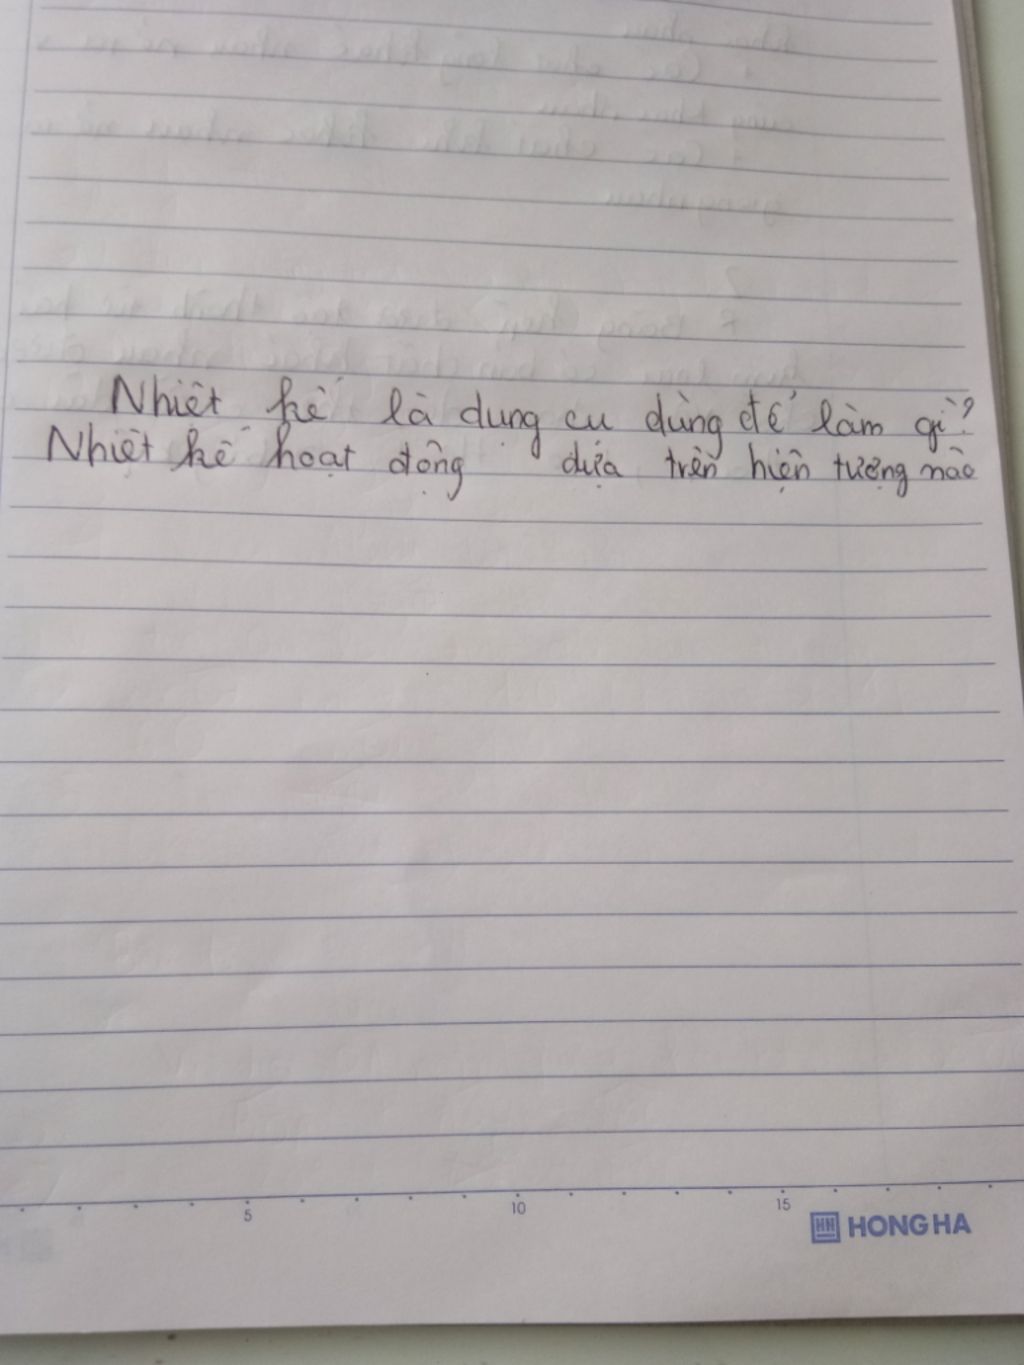 Nhiệt kế là dụng cụ dùng để làm gì?
Nhiệt kế hoạt động dựa trên hiện tượng nào
5 10 15
HH HONG HA